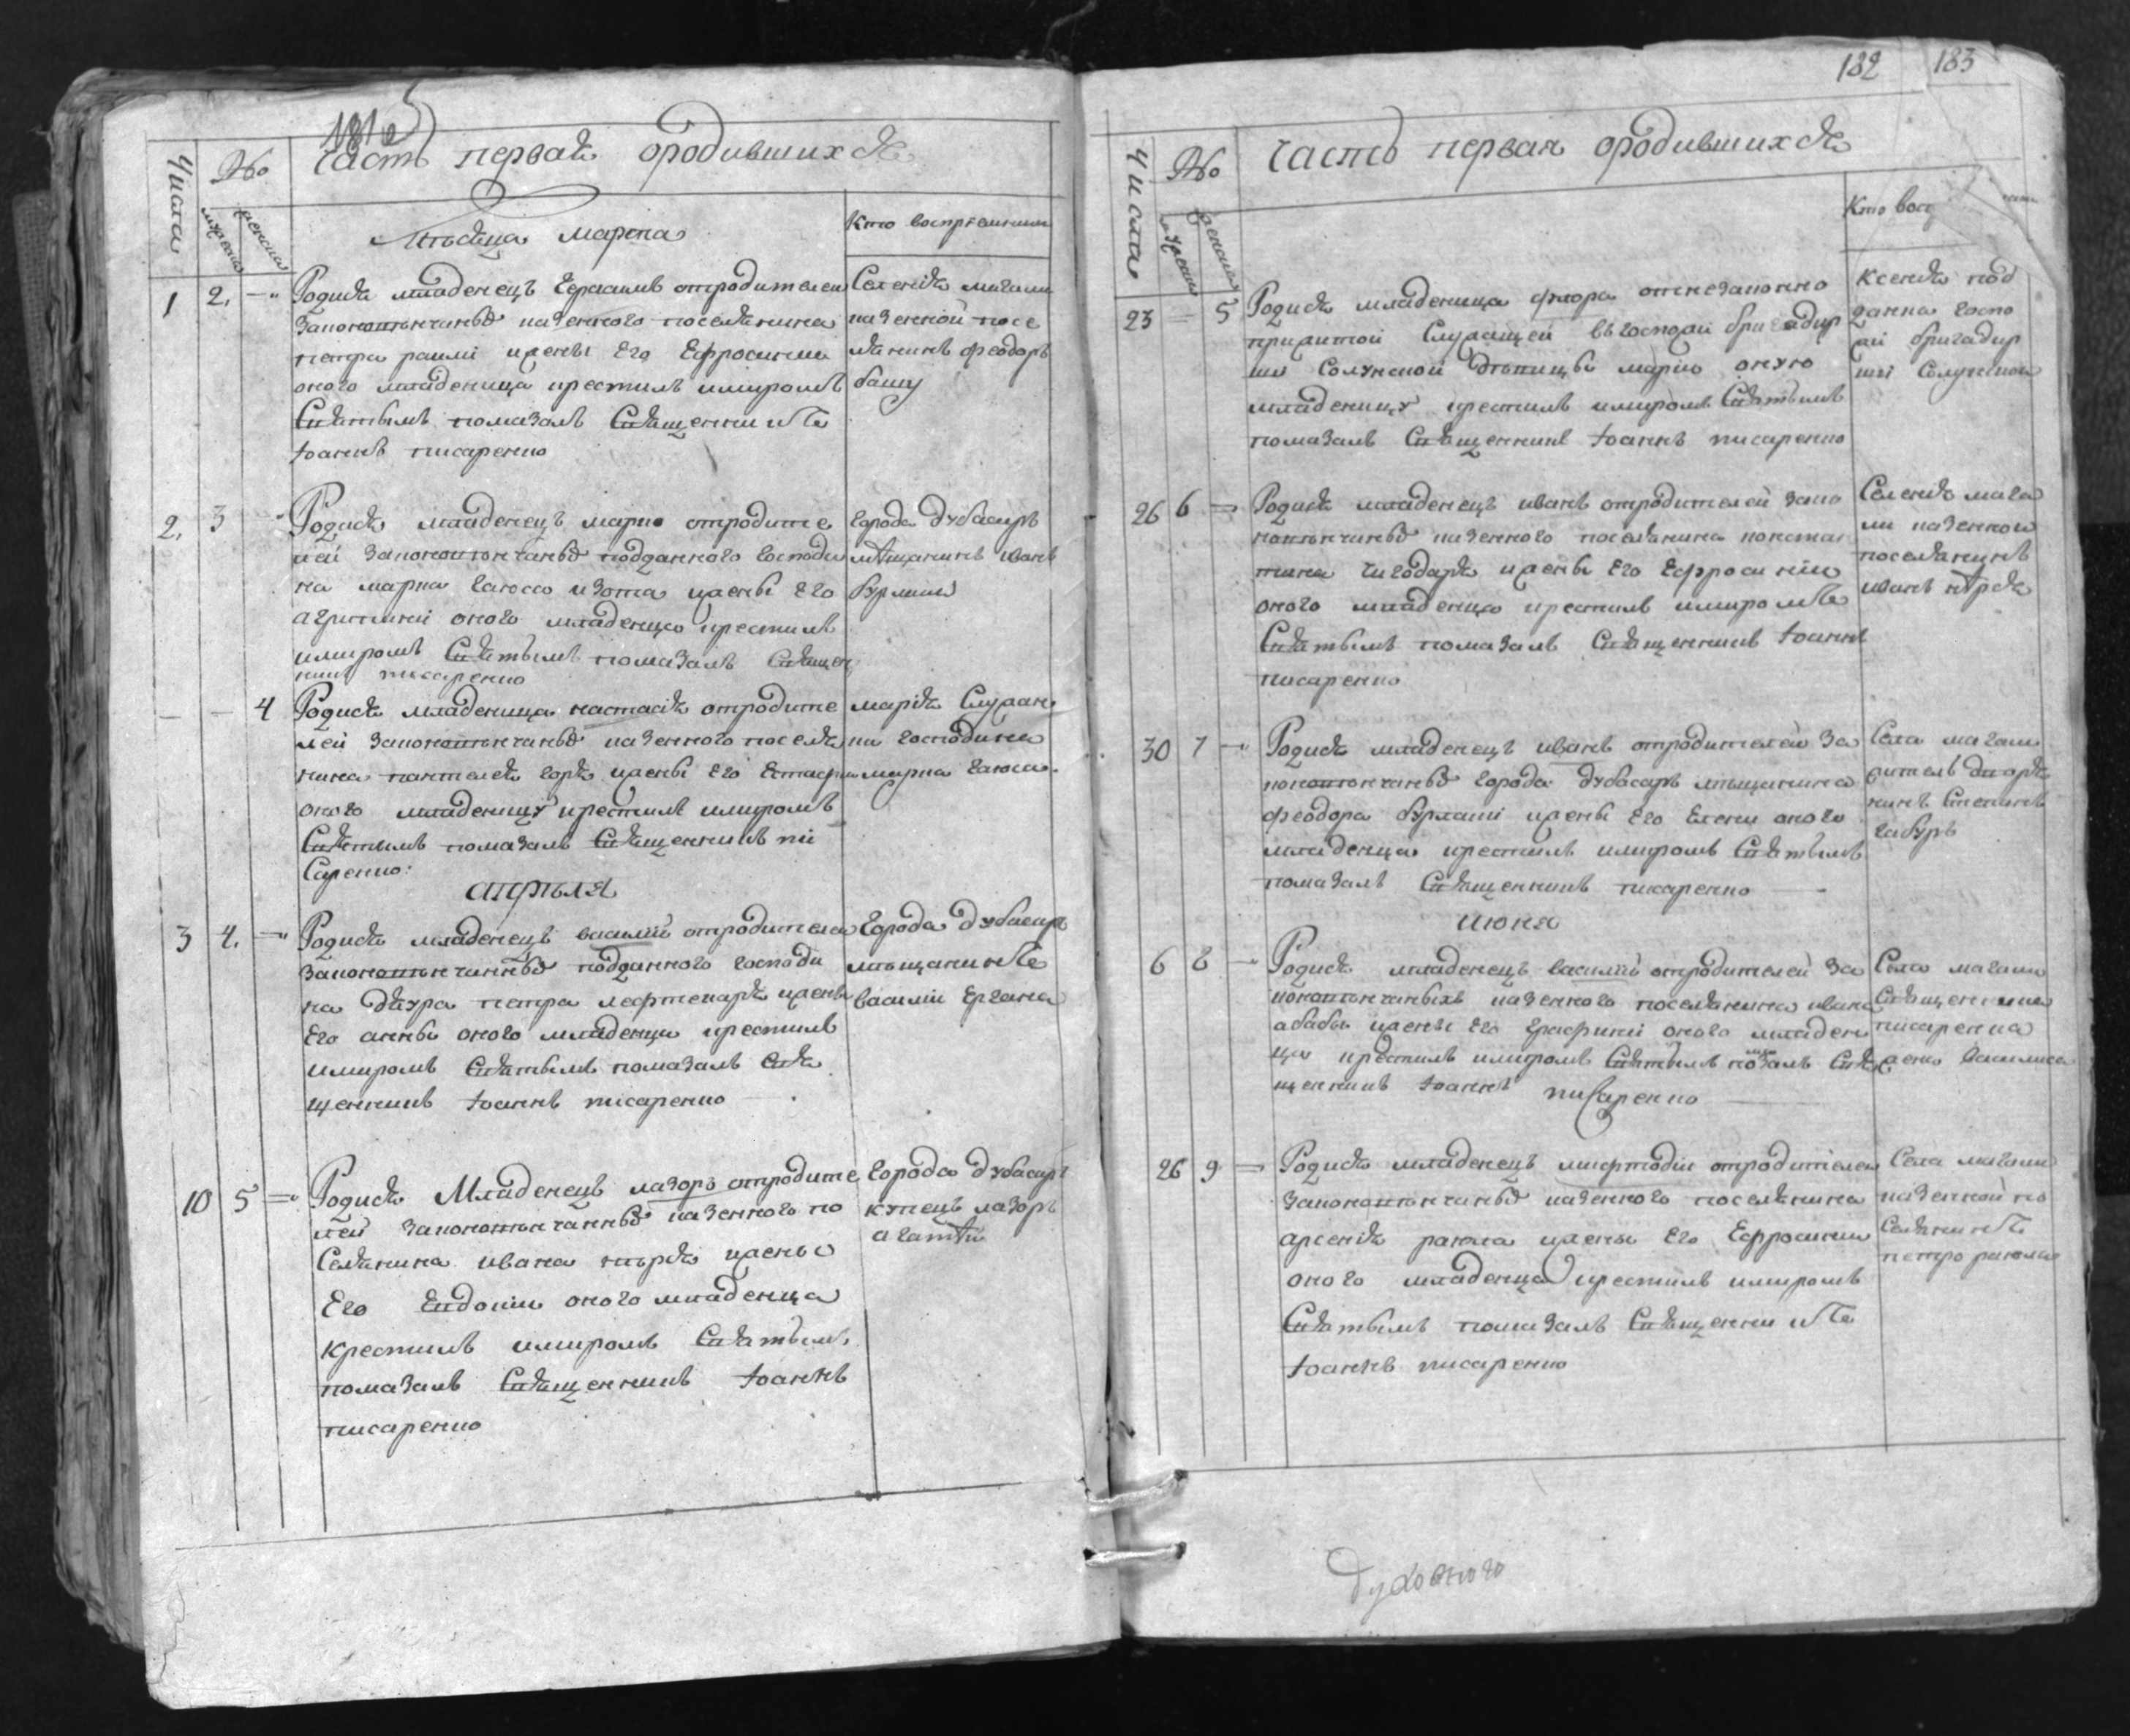 1816
Числа
№
мужеска
женска
Часть первая ородившихся
Мѣсяца марта
Кто воспріемники
1 2.
Родися младенецъ Герасимъ отродителей
законовѣнчаныхъ казенного поселянина
петра раилі жены Его Ефросинии
оного младенца крестилъ имиромъ
Святымъ помазалъ Священникъ
Іоаннъ писаренко
Селенія магали
казенной посе
лянинъ феодоръ
башу
2. 3
Родися младенецъ марко отродите
лей законовѣнчаныхъ подданного господи
на марка гаюсса изота жены Его
агрипині оного младенца крестилъ
имиромъ Святымъ помазалъ Священ
никъ писаренко
Города дубасаръ
мѣщанинъ иванъ
бурлаки
4
Родися младеница настасія отродите
лей законовѣнчаныхъ казенного поселя
нина пантелея горя жены Его Естафии
оного младеницу крестилъ имиромъ
Святымъ помазалъ Священникъ пи
Саренко:
марія Служан
ка господина
марка гаюса.
апрѣля
3 4.
Родися младенецъ василій отродителей
законовѣнчанныхъ подданного господи
на петра жены
Его анны оного младенца крестилъ
имиромъ Святымъ помазалъ Свя
щенникъ Іоаннъ писаренко
Города дубасаръ
мѣщанинъ
василій Ергана
10 5
Родися Младенецъ лазоръ отродите
лей законовѣнчанныхъ казенного по
Селянина ивана кырся жены
Его Евдокіи оного младенца
крестилъ имиромъ Святымъ
помазалъ Священникъ Іоаннъ
писаренко
Города дубасаръ
купецъ лазоръ
агатій
182 183
Числа
№
мужеска
женска
Часть первая ородившихся
Кто вос
23 5
Родися младеница флора отнезаконно
прижитой Служащей въ госпожи бригадир
ши Солунской дѣвицы маріи оную
младеницу крестилъ имиромъ Святымъ
помазалъ Священникъ Іоаннъ писаренко
Ксенія под
данна госпо
жі бригадир
ші Солунской
26 6
Родися младенецъ иванъ отродителей зако
новѣнчаныхъ казенного поселянина констан
тина чигодаря жены Его Ефросиніи
оного младенца крестилъ имиромъ
Святымъ помазалъ Священникъ Іоаннъ
писаренко
Селенія мага
ли казенной
поселянинъ
иванъ кѣрся
30 7
Родися младенецъ иванъ отродителей за
коновѣнчаныхъ города дубасаръ мѣщанина
феодора бурлакі жены Его Елени оного
младенца крестилъ имиромъ Святымъ
помазалъ Священникъ писаренко
Села магали
житель дворя
нинъ Степанъ
габуръ
июня
6 8
Родися младенецъ василій отродителей за
коновѣнчаныхъ казенного поселянина ивана
абабы жены Его Ерафині оного младен
ца крестилъ имиромъ Святымъ помазалъ Свя
щенникъ Іоаннъ писаренко
Села магали
Священника
писаренка
жена василиса
26 9
Родися младенецъ мифтодій отродителей
законовѣнчаныхъ казенного поселянина
арсенія раюла жены Его Ефросинии
оного младенца крестилъ имиромъ
Святымъ помазалъ Священникъ
Іоаннъ писаренко
Села магали
казенной по
Селянинъ
петро раюла
духовного